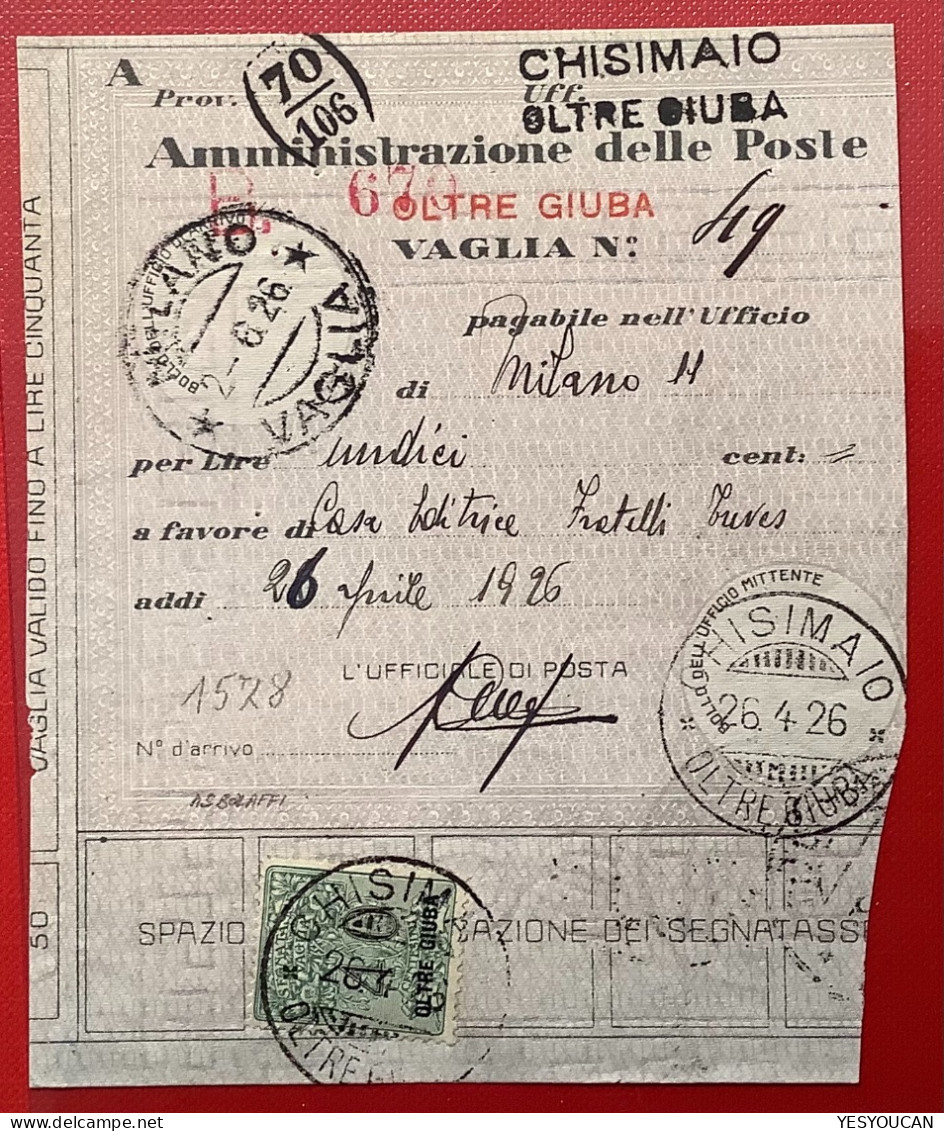 A
Prov.
70
106
CHISIMAIO
Uff.
OLTRE GIUBA
Amministrazione delle Poste
B. 670
OLTRE GIUBA
VAGLIA N.° 49
BOLLO DELL'UFFICIO DI ARRIVO
MILANO
2-6.26
VAGLIA
pagabile nell'Ufficio
di Milano 11
per Lire undici cent: =
a favore di Casa Editrice Fratelli Treves
addi 26 Aprile 1926
L'UFFICIALE DI POSTA
1578
N° d'arrivo
A.S. BOLAFFI
BOLLO DELL'UFFICIO MITTENTE
CHISIMAIO
26.4.26
OLTRE GIUBA
VAGLIA VALIDO FINO A LIRE CINQUANTA
50
SPAZIO AZIONE DEI SEGNATASSE
OLTRE GIUBA
CHISIM
26.4
OLTRE G
YESYOUCAN